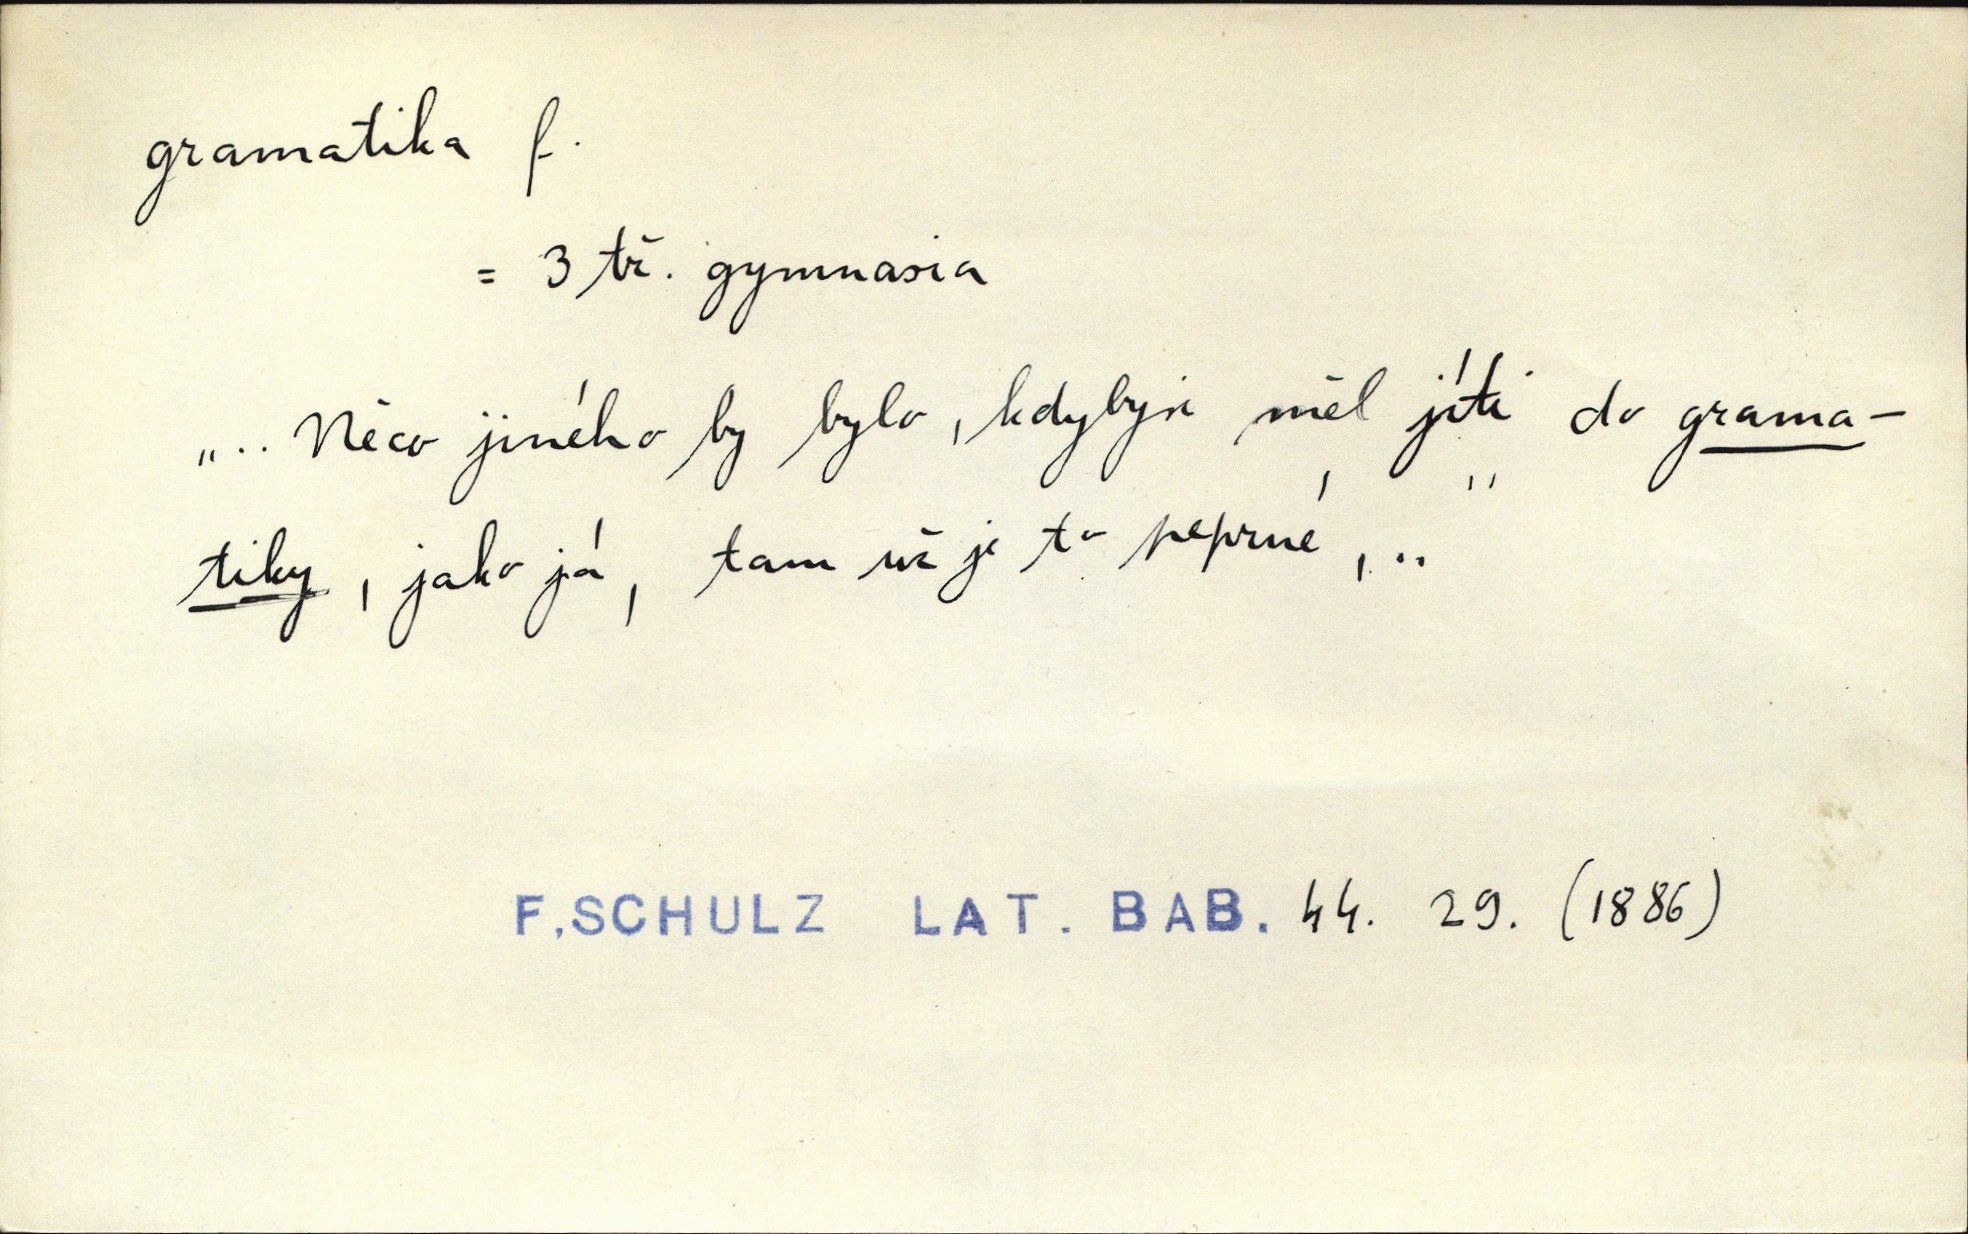 gramatika f.
= 3 tř. gymnasia
„.. Něco jiného by bylo, kdybysi měl jíti do grama-
tiky, jako já, tam už je to peprné,.."
F. SCHULZ LAT. BAB. 44. 29. (1886)